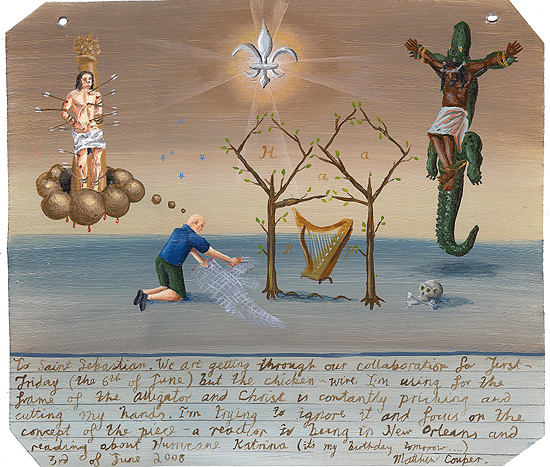 H a
a
R m
To Saint Sebastian. We are getting through our collaboration for First-
Friday (the 6th of June) but the chicken-wire I'm using for the
frame of the alligator and Christ is constantly pricking and
cutting my hands. I'm trying to ignore it and focus on the
concept of the piece - a reaction to being in New Orleans and
reading about Hurricane Katrina (it's my birthday tomorrow....)
3rd of June 2008 Matthew Couper.